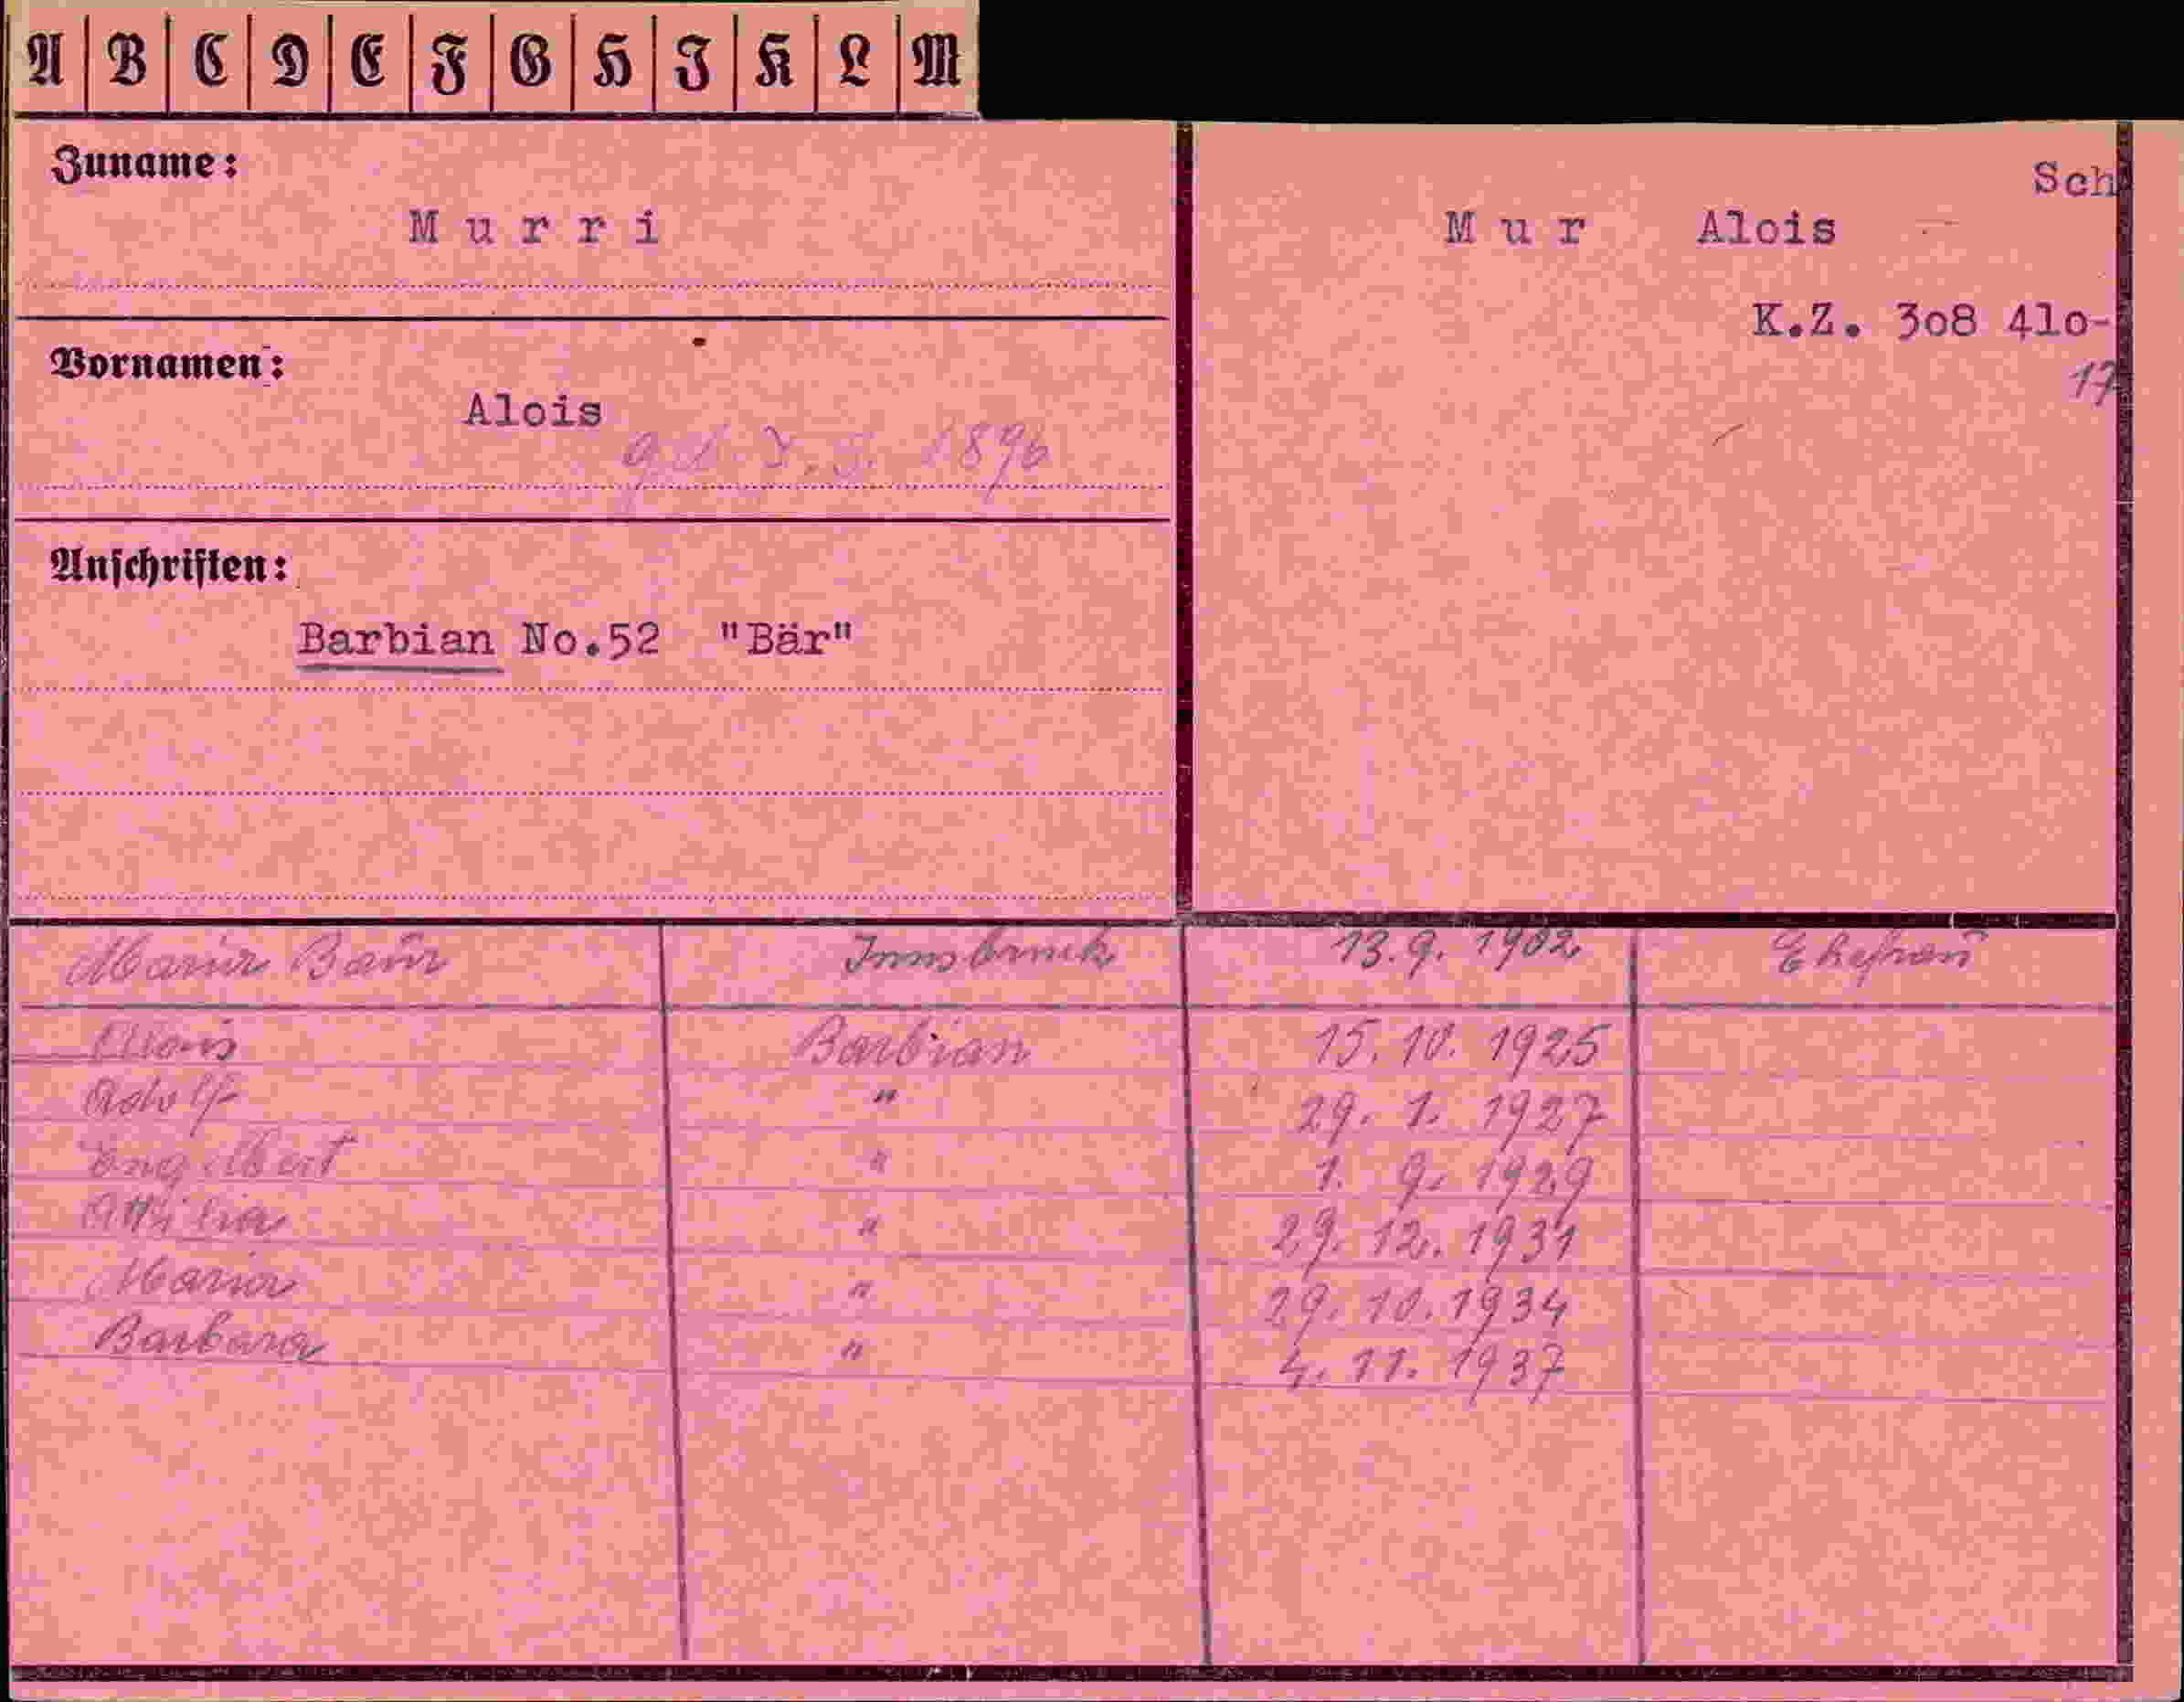 A B C D E F G H I K L M
Zuname:
Murri
Vornamen:
Alois
1896
Anschriften:
Barbian No.52 "Bär"
Sch
Mur Alois
K.Z. 308 410-
17
Maria Baur Innsbruck 13.9.1902 Ehefrau
Alois Barbian 15.10.1925
Adolf " 29.1.1927
Engelbert " 1.9.1929
Ottilia " 29.12.1931
Maria " 29.10.1934
Barbara " 4.11.1937